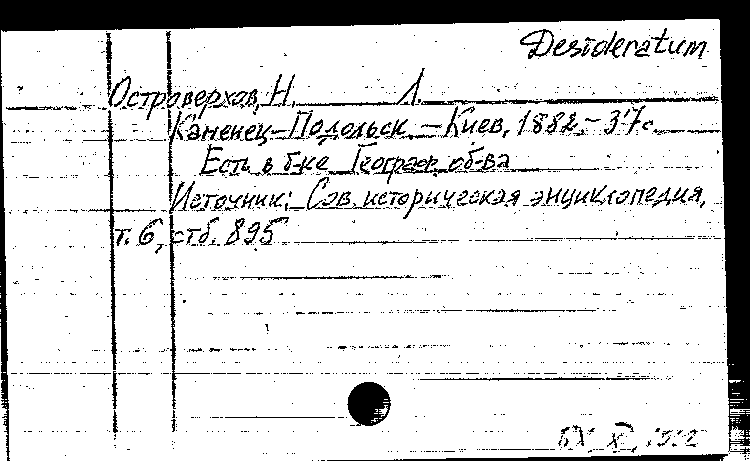 Desideratum
Островерхов, Н. Л.
Каменец-Подольск. – Киев, 1882. – 37с.
Есть в б-ке Географ. об-ва
Источник: Сов. историческая энциклопедия,
т. 6, стб. 895